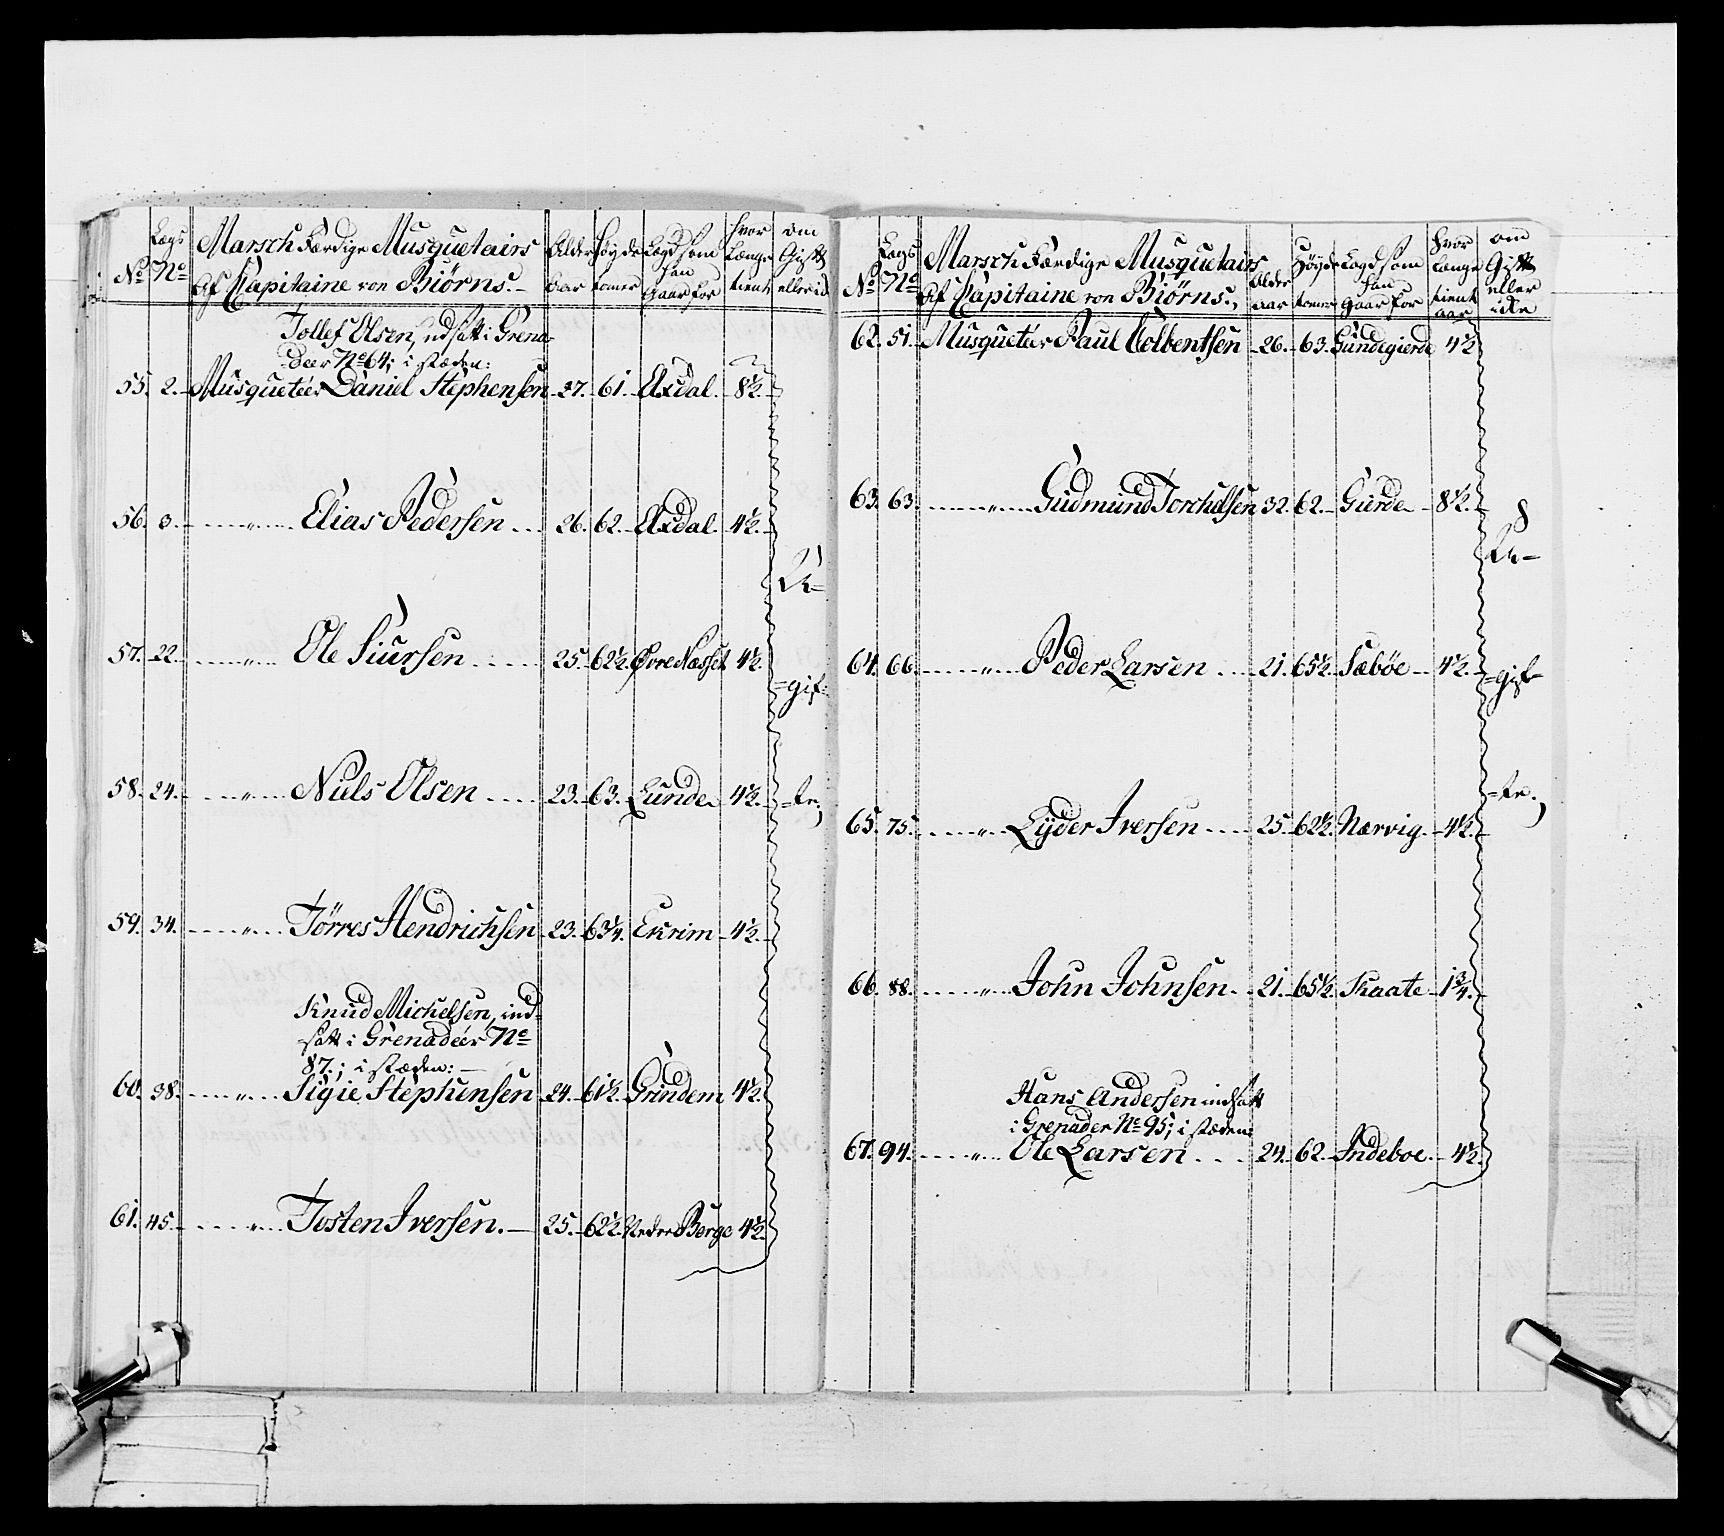 No Lægs No Marsch Færdige Musquetairs Af Capitaine von Biørns. Alder Aar Høyde tomer Lægd som han Gaar for hvor Længe tient om Gift eller id
Tollef Olsen, udsatt i Grena-
deer No 64; i stæden:
55. 2. Musqueteer Daniel Stephensen 27. 61. Axdal. 8½.
56. 3. " Elias Pedersen 26. 62. Axdal. 4½.
57. 22. " Ole Siursen 25. 62½. Øvre Næsset 4½.
58. 24. " Niels Olsen 23. 63. Lunde 4½.
59. 34. " Tørres Hendrichsen 23. 63¼. Ekrim 4½.
Knud Michelsen, ind-
satt i Grenadeer No
87.; i stæden:
60. 38. " Sigie Stephensen 24. 61½. Grindem 4½.
61. 45. " Tosten Iversen. 25. 62½. Nedre Berge 4½.
U=
=gif=
=te.
No Lægs No Marsch Færdige Musquetairs Af Capitaine von Biørns. Alder aar Høyde tomer Lægd som han gaar for hvor længe tient aar om Gift eller idke
62. 51. Musqueteer Paul Colbentsen 26. 63. Gundegierde 4½
63. 63. " Gudmund Torchelsen 32. 62. Gierde 8½.
64. 66. " Peder Larsen 21. 65½. Sæbøe 4½.
65. 75. " Lyder Iversen 25. 62½. Nærvig. 4½.
66. 88. " John Johnsen 21. 65½. Skaate 1¾.
Hans Andersen indsatt
i Grenader No 95; i stæden
67. 94. " Ole Larsen 24. 62. Indeboe. 4½.
U=
=gif=
=te.